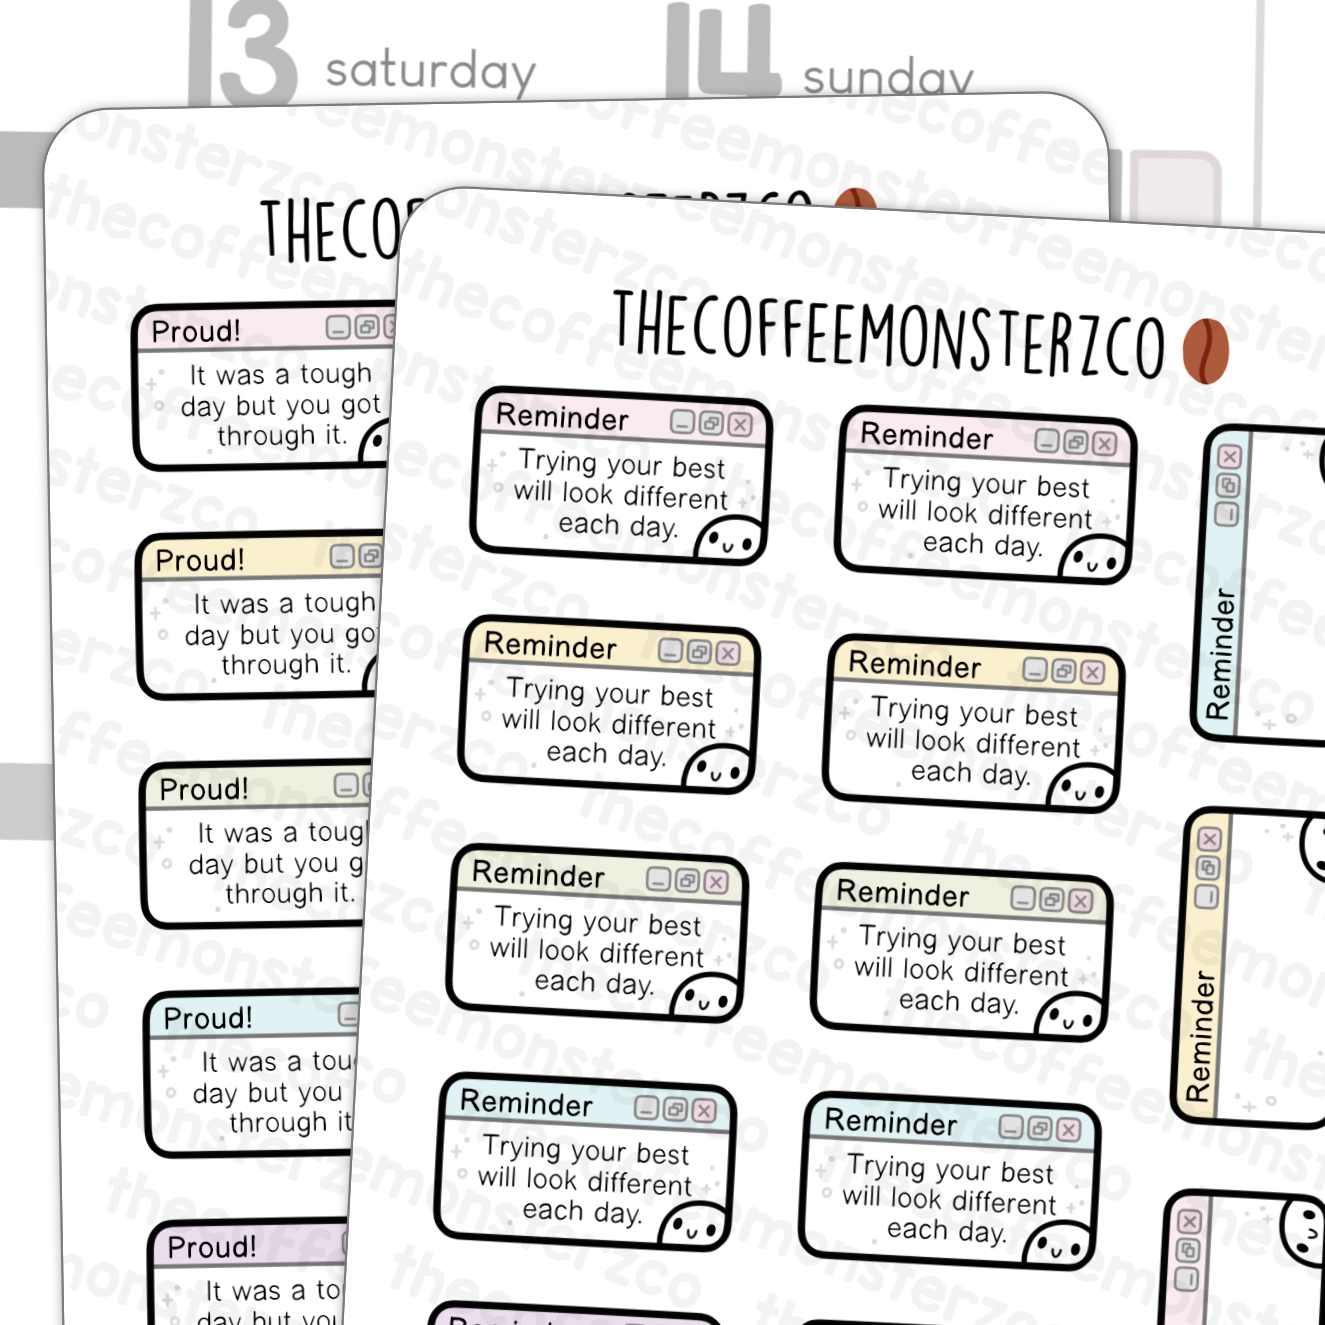 13 saturday
14 sunday
THECOF
THECOFFEEMONSTERZCO
Proud!
It was a tough
day but you got
through it.
Proud!
It was a tough
day but you go
through it.
Proud!
It was a toug
day but you g
through it.
Proud!
It was a tou
day but you
through it
Proud!
It was a to
day but you
Reminder
Trying your best
will look different
each day.
Reminder
Trying your best
will look different
each day.
Reminder
Trying your best
will look different
each day.
Reminder
Trying your best
will look different
each day.
Reminder
Trying your best
will look different
each day.
Reminder
Trying your best
will look different
each day.
Reminder
Trying your best
will look different
each day.
Reminder
Trying your best
will look different
each day.
Reminder
Reminder